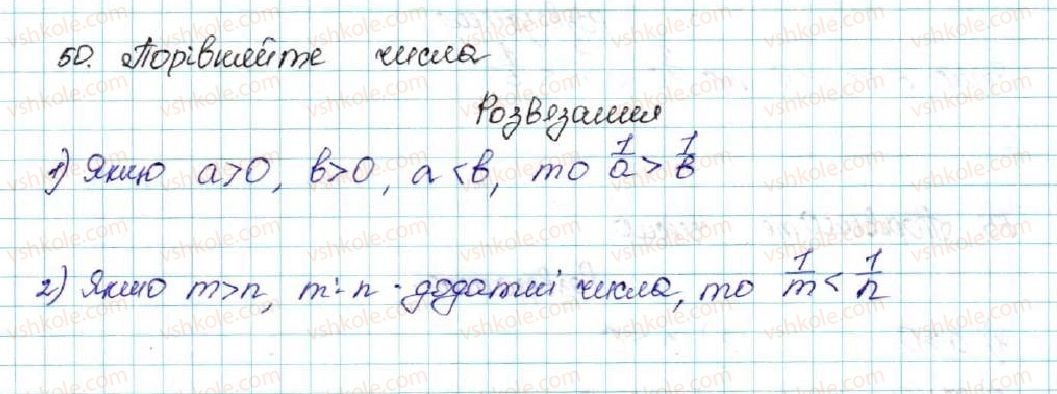 50. Порівняйте числа
Розвязання
1) Якщо a>0, b>0, a<b, то 1/a > 1/b
2) Якщо m>n, m i n - додатні числа, то 1/m < 1/n